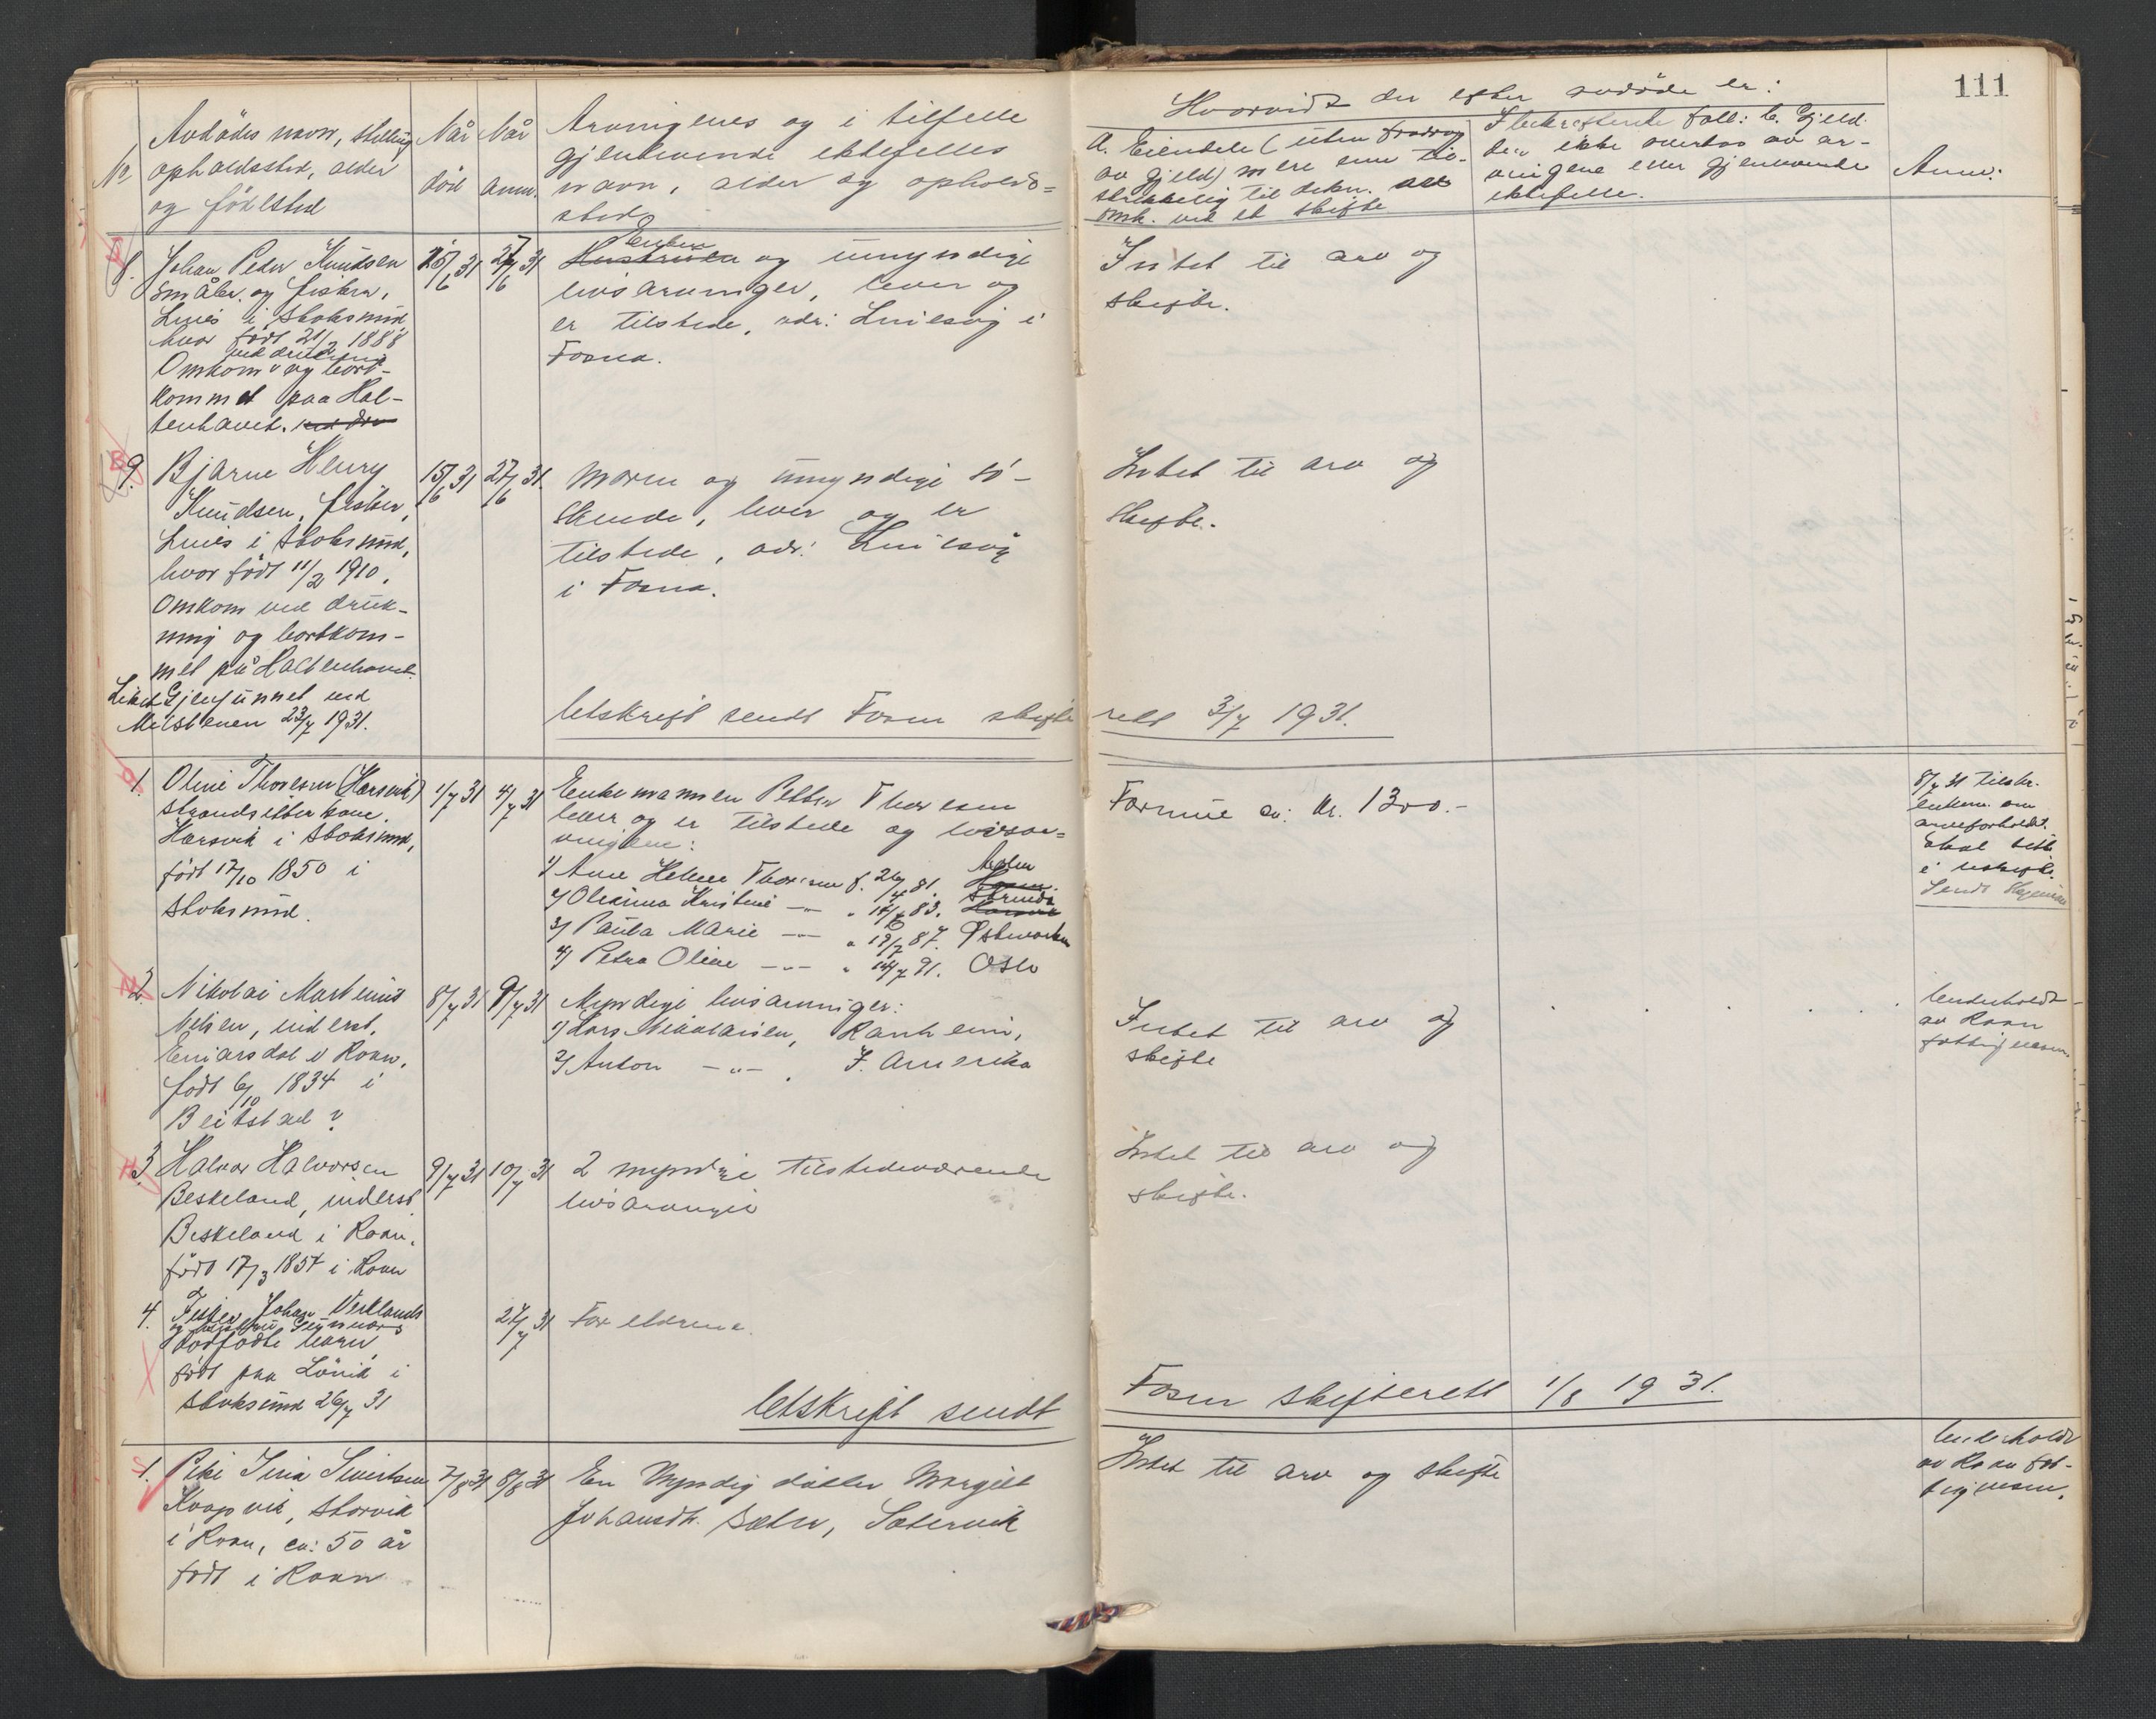 111
No
Avdødes navn, stilling
opholdssted, alder
og fødested
Når
død
Når
anm.
Arvingenes og i tilfelle
gjenlevende ektefelles
navn, alder og opholds=
sted
Hvorvidt der efter avdøde er:
A. Eiendele (uten fradrag
av gjeld) mere enn til-
strekkelig til dekn. av
omk. ved et skifte
I bekreftende fall: b. Gjeld
den ikke overtas av ar-
vingene eller gjenlevende
ektefelle.
Anm:
8. Johan Peder Knudsen
småbr. og fisker,
Lines i Stoksund
hvor født 21/2 1888
ved drukning
Omkom og bort-
kommet paa Hal-
tenhavet. ved dru
15/6 31
27/6 31
Enken
Hustruen og umyndige
livsarvinger, lever og
er tilstede, adr: Linesøy i
Fosna.
Intet til arv og
skifte.
9. Bjarne Henry
Knudsen, fisker,
Lines i Stoksund,
hvor født 11/2 1910.
Omkom ved druk-
ning og bortkom-
met på Haltenhavet
Liket Gjenfunnet ved
Melstenen 23/7 1931.
15/6 31
27/6 31.
Moren og umyndige sø-
skende, lever og er
tilstede, adr: Linesøy
i Fosna.
Intet til arv og
skifte.
Utskrift sendt Fosen skifterett 3/7 1931.
1. Oline Thoresen (Harsvik)
strandsitterkone.
Harsvik i Stoksund,
født 17/10 1850 i
Stoksund.
1/7 31
4/7 31
Enkemannen Petter Thoresen
lever og er tilstede og livsar=
vingene:
1) Ane Helene Thoresen f. 26/4 81.
2) Olianna Kristine —„— „ 14/6 83. Strinda
3) Paula Marie —„— „ 19/7 87.
4) Petra Oline —„— „ 14/7 91. Oslo
Formue ca: kr. 1300.-
8/7 31 tilskr.
enkem. om
arveforholdet.
Skal sitte
i uskifte.
2. Nikolai Martinus
Nilsen, inderst,
Einarsdal i Roan,
født 6/10 1834 i
Beitstad?
8/7 31
9/7 31
Myndige livsarvinger:
1) Lars Nikolaisen, Ranheim,
2) Anton —„— , I. Amerika
Intet til arv og
skifte
Underholdt
av Roan
fattigvesen.
3. Halvor Halvorsen
Beskeland, inderst
Beskeland i Roan.
født 17/3 1857 i Roan
9/7 31
10/7 31
2 myndige tilstedeværende
livsarvinger
Intet til arv og
skifte.
4. Fisker Johan Vestlands
og hustru Gunvors
dødfødte barn,
født paa Lønik i
Stoksund 26/7 31
27/7 31
Foreldrene.
Utskrift sendt Fosen skifterett 1/8 1931.
1. Peke Jena Sivertsen
Kroopvik, Storvik
i Roan, ca: 50 år
født i Roan
7/8 31
8/8 31
En Myndig datter Margit
Johansdtr. Sæter, Sætervik
Intet til arv og skifte
Underholdt
av Roan fat-
tigvesen.